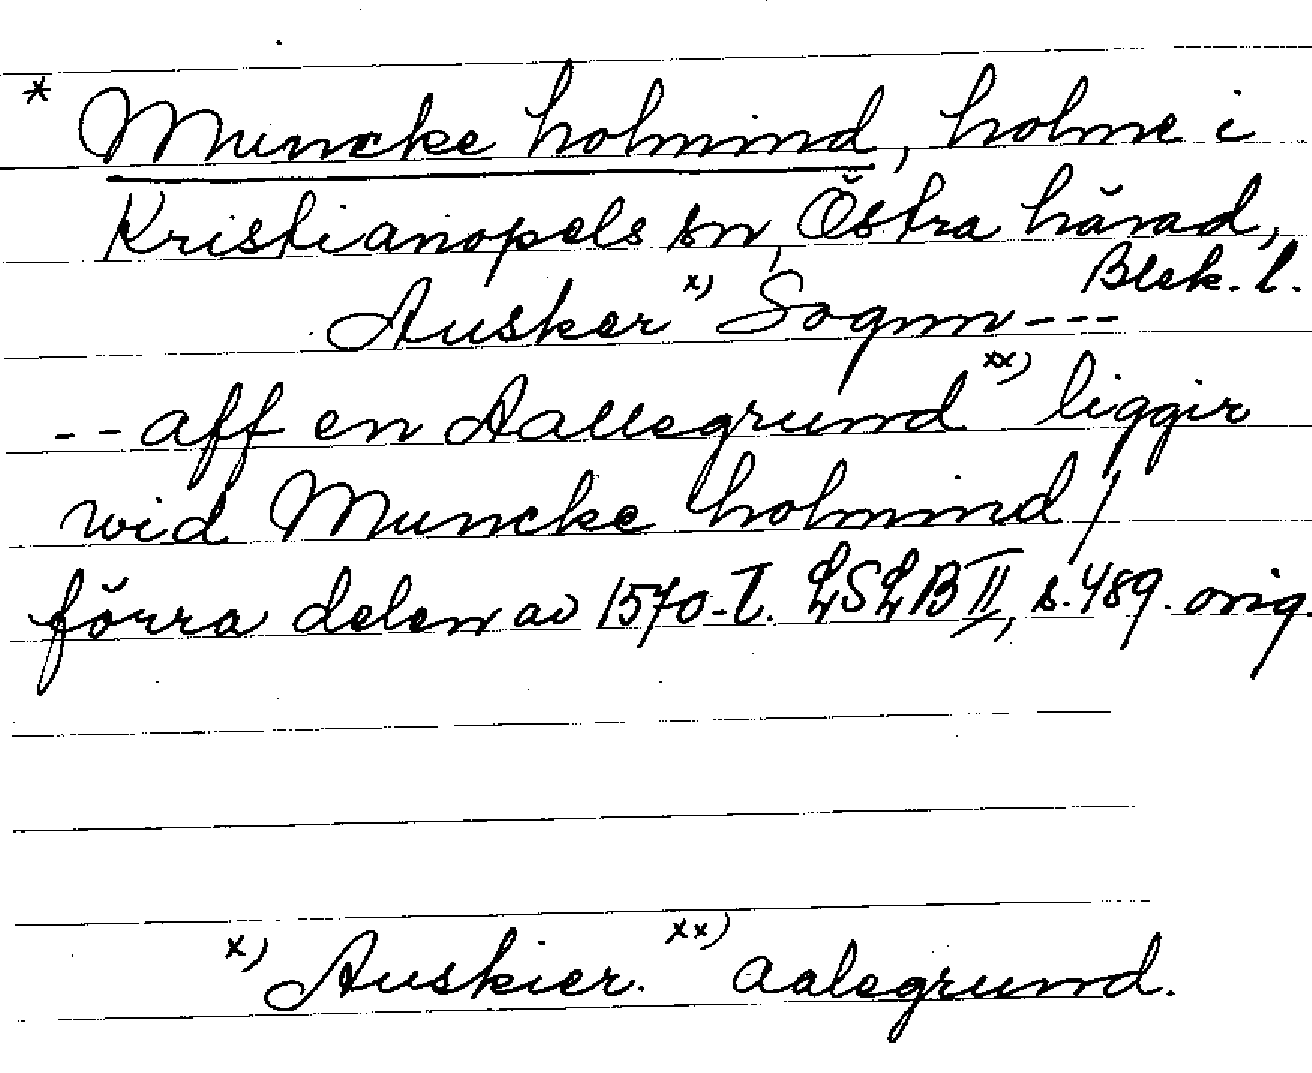 * Muncke holmind, holme i
Kristianopels sn, Östra härad,
Blek. l.
Ausker x) Sognn ---
-- aff en Aallegrund xx) liggir
wid Muncke holmind /
förra delen av 1570-t. LSLB II, s. 489. orig.
x) Auskier. xx) aalegrund.